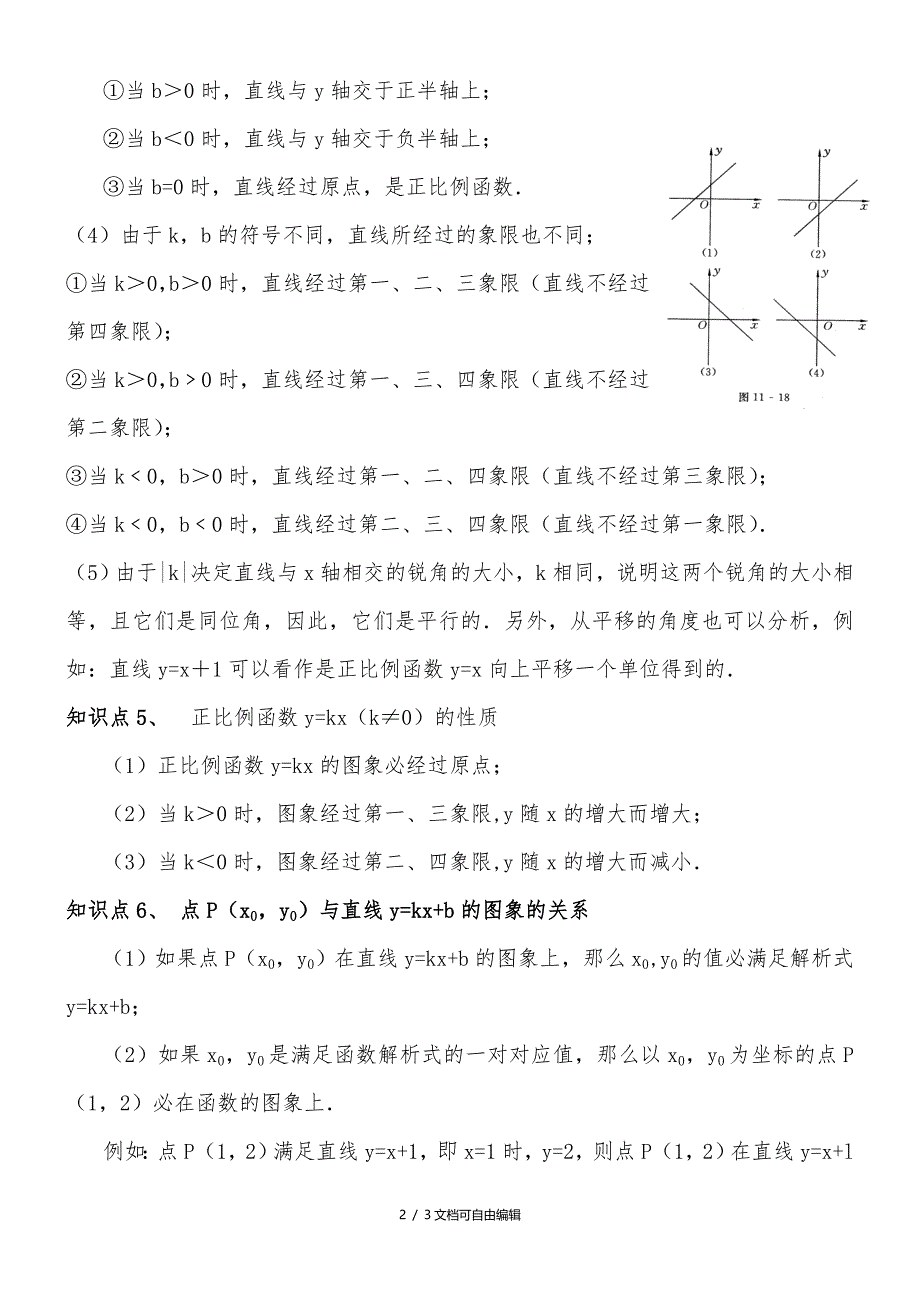 ①当 b＞0 时，直线与 y 轴交于正半轴上；
②当 b＜0 时，直线与 y 轴交于负半轴上；
③当 b=0 时，直线经过原点，是正比例函数．
（4）由于 k，b 的符号不同，直线所经过的象限也不同；
①当 k＞0,b＞0 时，直线经过第一、二、三象限（直线不经过
第四象限）；
②当 k＞0,b﹥0 时，直线经过第一、三、四象限（直线不经过
第二象限）；
y
O
x
(1)
y
O
x
(2)
y
O
x
(3)
y
O
x
(4)
图 11 - 18
③当 k﹤0，b＞0 时，直线经过第一、二、四象限（直线不经过第三象限）；
④当 k﹤0，b﹤0 时，直线经过第二、三、四象限（直线不经过第一象限）．
（5）由于|k|决定直线与 x 轴相交的锐角的大小，k 相同，说明这两个锐角的大小相
等，且它们是同位角，因此，它们是平行的．另外，从平移的角度也可以分析，例
如：直线 y=x＋1 可以看作是正比例函数 y=x 向上平移一个单位得到的．
知识点 5、 正比例函数 y=kx（k≠0）的性质
（1）正比例函数 y=kx 的图象必经过原点；
（2）当 k＞0 时，图象经过第一、三象限,y 随 x 的增大而增大；
（3）当 k＜0 时，图象经过第二、四象限,y 随 x 的增大而减小．
知识点 6、 点 P（x₀，y₀）与直线 y=kx+b 的图象的关系
（1）如果点 P（x₀，y₀）在直线 y=kx+b 的图象上，那么 x₀,y₀的值必满足解析式
y=kx+b；
（2）如果 x₀，y₀是满足函数解析式的一对对应值，那么以 x₀，y₀为坐标的点 P
（1，2）必在函数的图象上．
例如：点 P（1，2）满足直线 y=x+1，即 x=1 时，y=2，则点 P（1，2）在直线 y=x+l
2 / 3文档可自由编辑